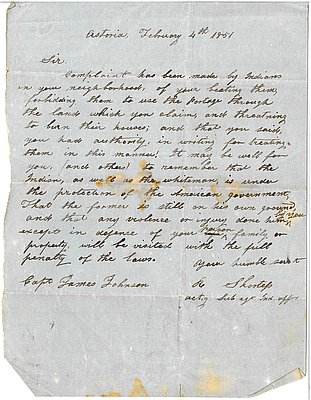 Astoria, Februay 4th 1851
Sir.
Complaint has been made by Indians
in your neighborhood, of your beating them,
forbidding them to use the Portage through
the land which you claim, and threatning
to burn their houses; and that you said,
you had authority, in writing for treating
them in this manner! It may be well for
you, (and others) to remember that the
Indian, as well as the whiteman, is under
the protection of the American government,
That the former is still in his own ground,
and that any violence or injury done by you
except in defence of your person, family, or
property, will be visited with the full
penalty of the laws.
Your humble servt
Capt James Johnson
R Shortess
acting Sub agt Ind affrs